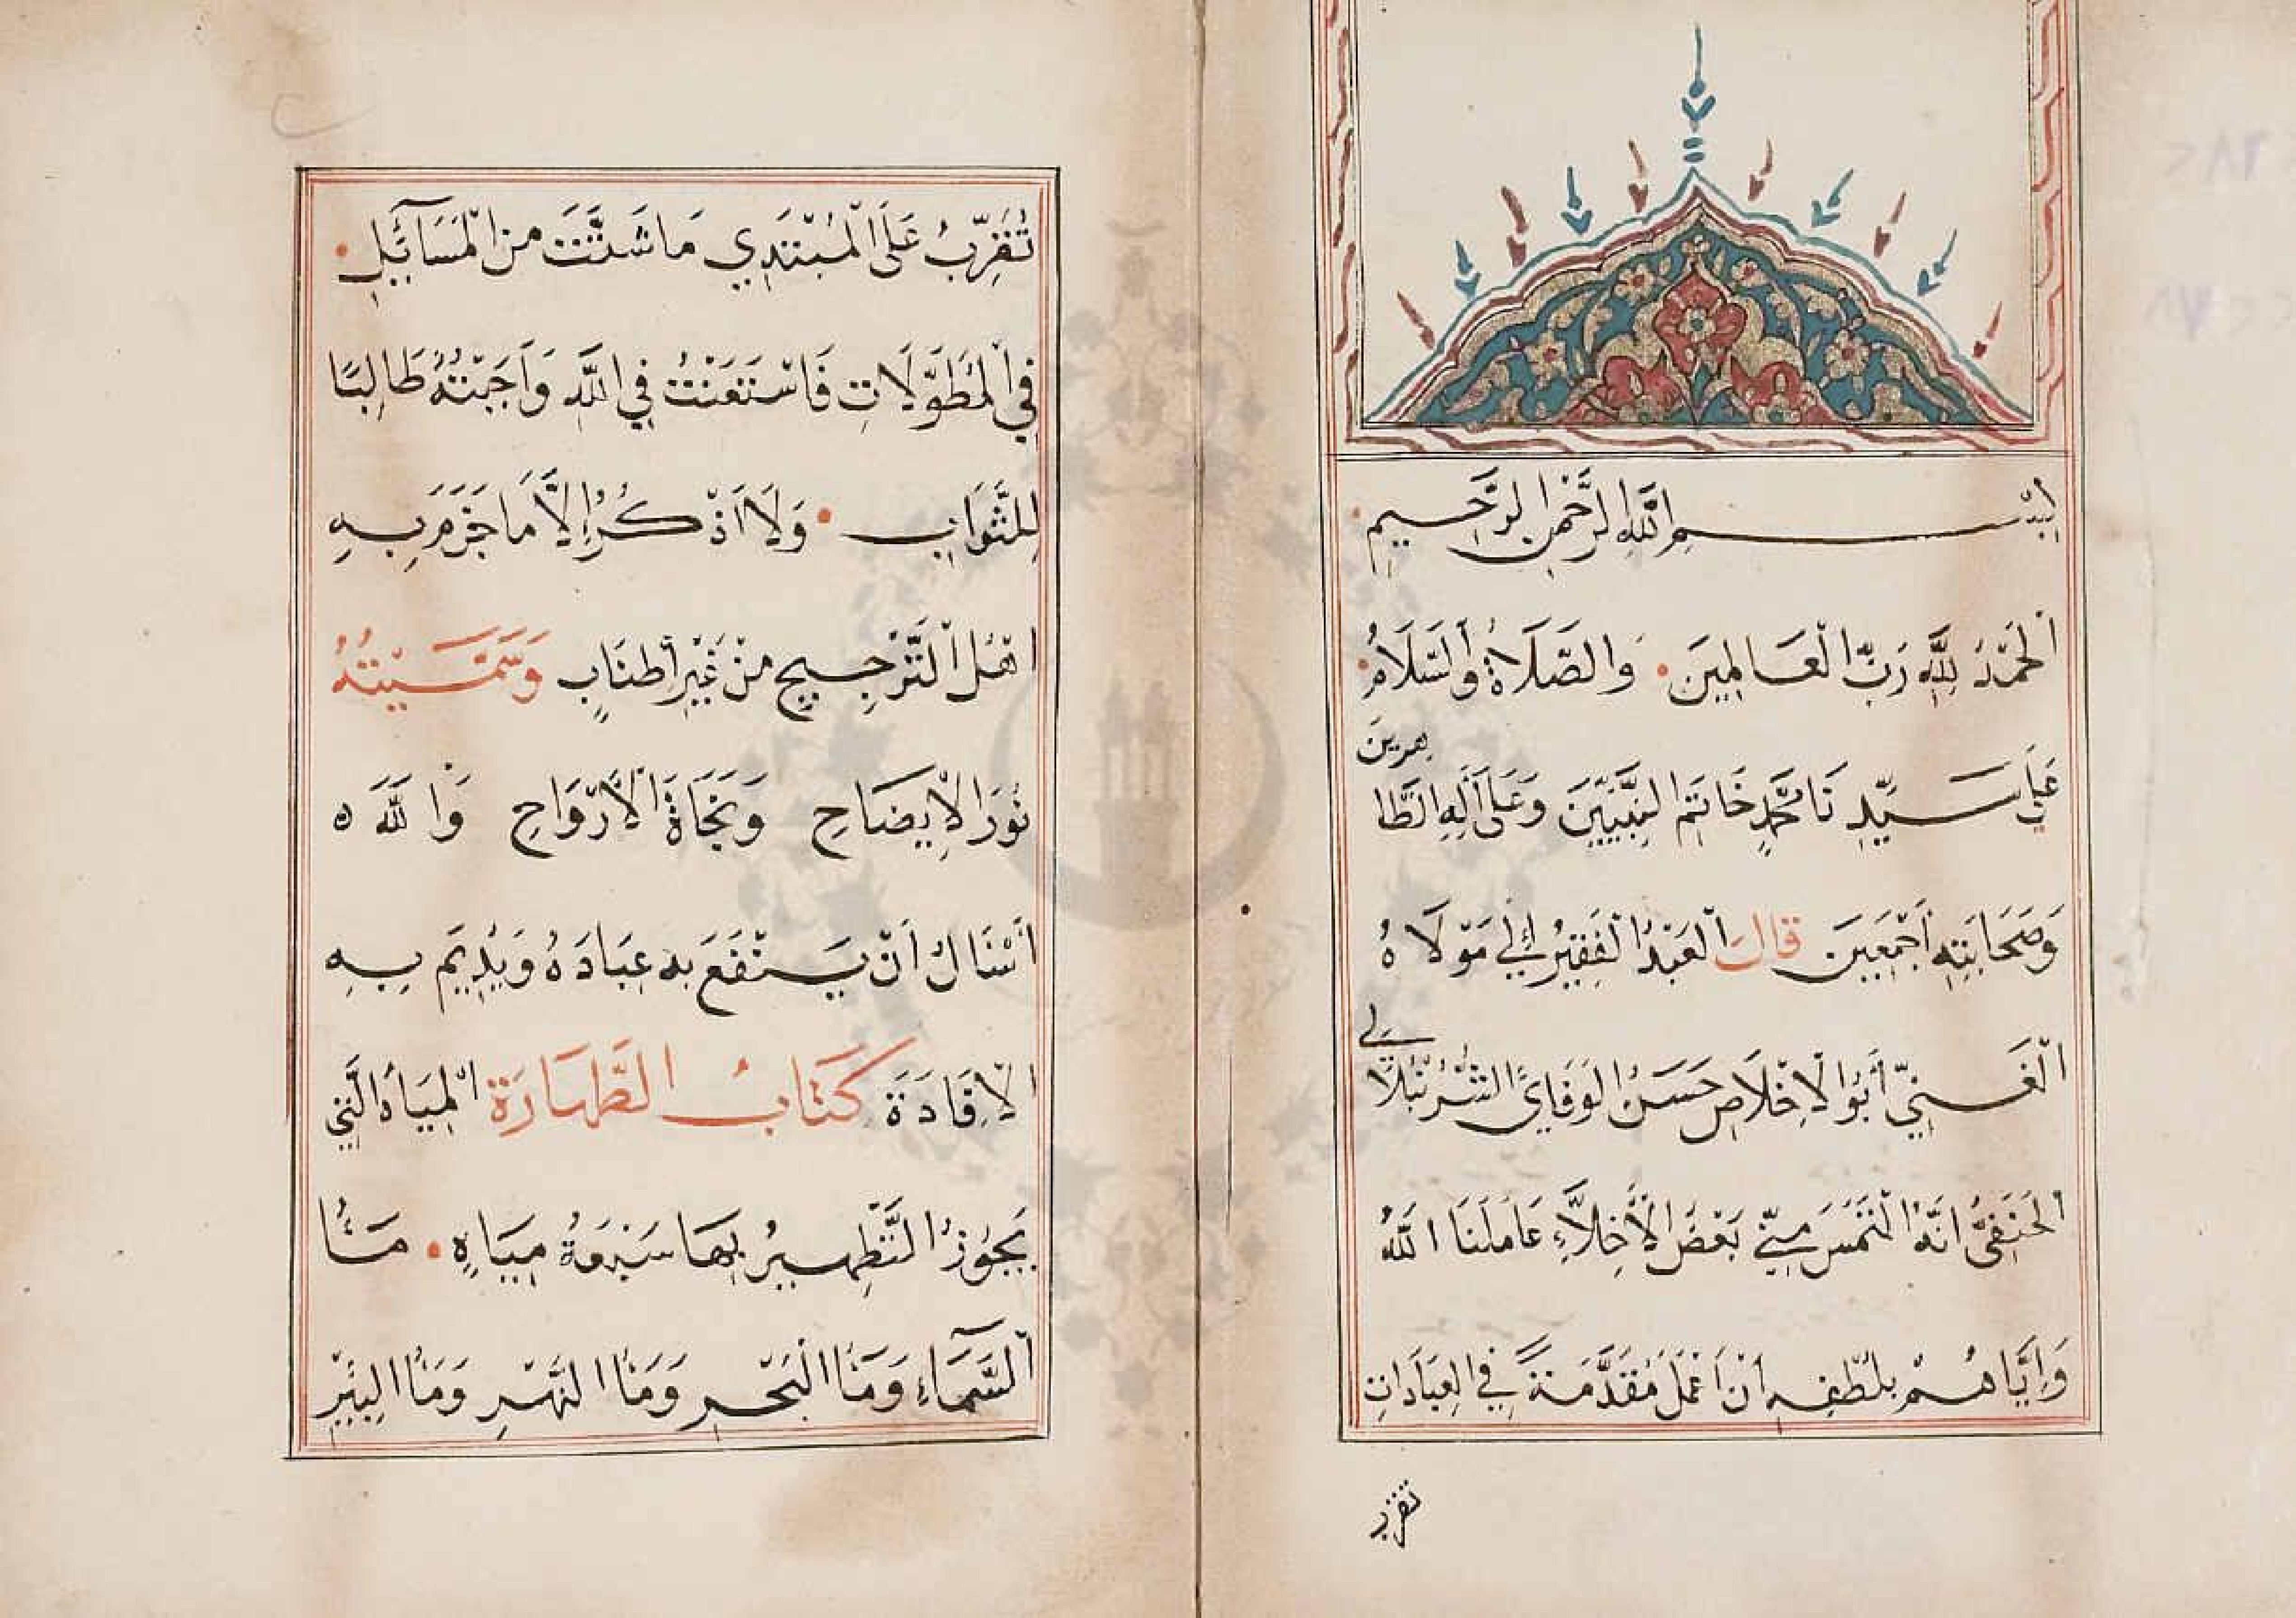 بِسْمِ اللَّهِ الرَّحْمٰنِ الرَّحِيمِ
اَلْحَمْدُ لِلَّهِ رَبِّ الْعَالَمِينَ وَالصَّلَاةُ وَالسَّلَامُ
عَلَى سَيِّدِنَا مُحَمَّدٍ خَاتَمِ النَّبِيِّينَ وَعَلَى آلِهِ الطَّا
هرينَ
وَصَحَابَتِهِ أَجْمَعِينَ قَالَ الْعَبْدُ الْفَقِيرُ إِلَى مَوْلَاهُ
الْغَنِيِّ أَبُو الْاِخْلَاصِ حَسَنُ الوَفَايُّ الشُّرُنْبُلَا
لي
الْحَنَفِيُّ اَنَّهُ الْتَمَسَ مِنِّي بَعْضُ الْأَخِلَّاءِ عَامَلَنَا اللَّهُ
وَإِيَّاهُمْ بِلُطْفِهِ اَنْ اَعْمَلَ مُقَدَّمَةً فِي الْعِبَادَاتِ
تقرب
تُقَرِّبُ عَلَى الْمُبْتَدِي مَا شَتَّتَ مِنَ الْمَسَائِلِ
فِي الْمُطَوَّلَاتِ فَاسْتَعَنْتُ فِي اللَّهِ وَاَجَبْتُهُ طَالِبًا
لِلثَّوَابِ وَلَا اَذْكُرُ إِلَّا مَا جَزَمَ بِهِ
اهْلُ التَّرْجِيحِ مِنْ غَيْرِ أِطنَابٍ وَسَمَّيْتُهُ
نُورَ الْإِيضَاحِ وَنَجَاةَ الْأَرْوَاحِ وَاللَّهَ ه
أَسْئَالُ اَنْ يَنْفَعَ بِهِ عِبَادَهُ وَيُدِيمَ بِهِ
الْاِفَادَةَ كِتَابُ الطَّهَارَةِ الْمِيَاهُ الَّتِي
يَجُوزُ التَّطْهِيرُ بِهَا سَبْعَةُ مِيَاهٍ مَاءُ
السَّمَاءِ وَمَاءُ الْبَحْرِ وَمَاءُ النَّهْرِ وَمَاءُ الْبِئْرِ